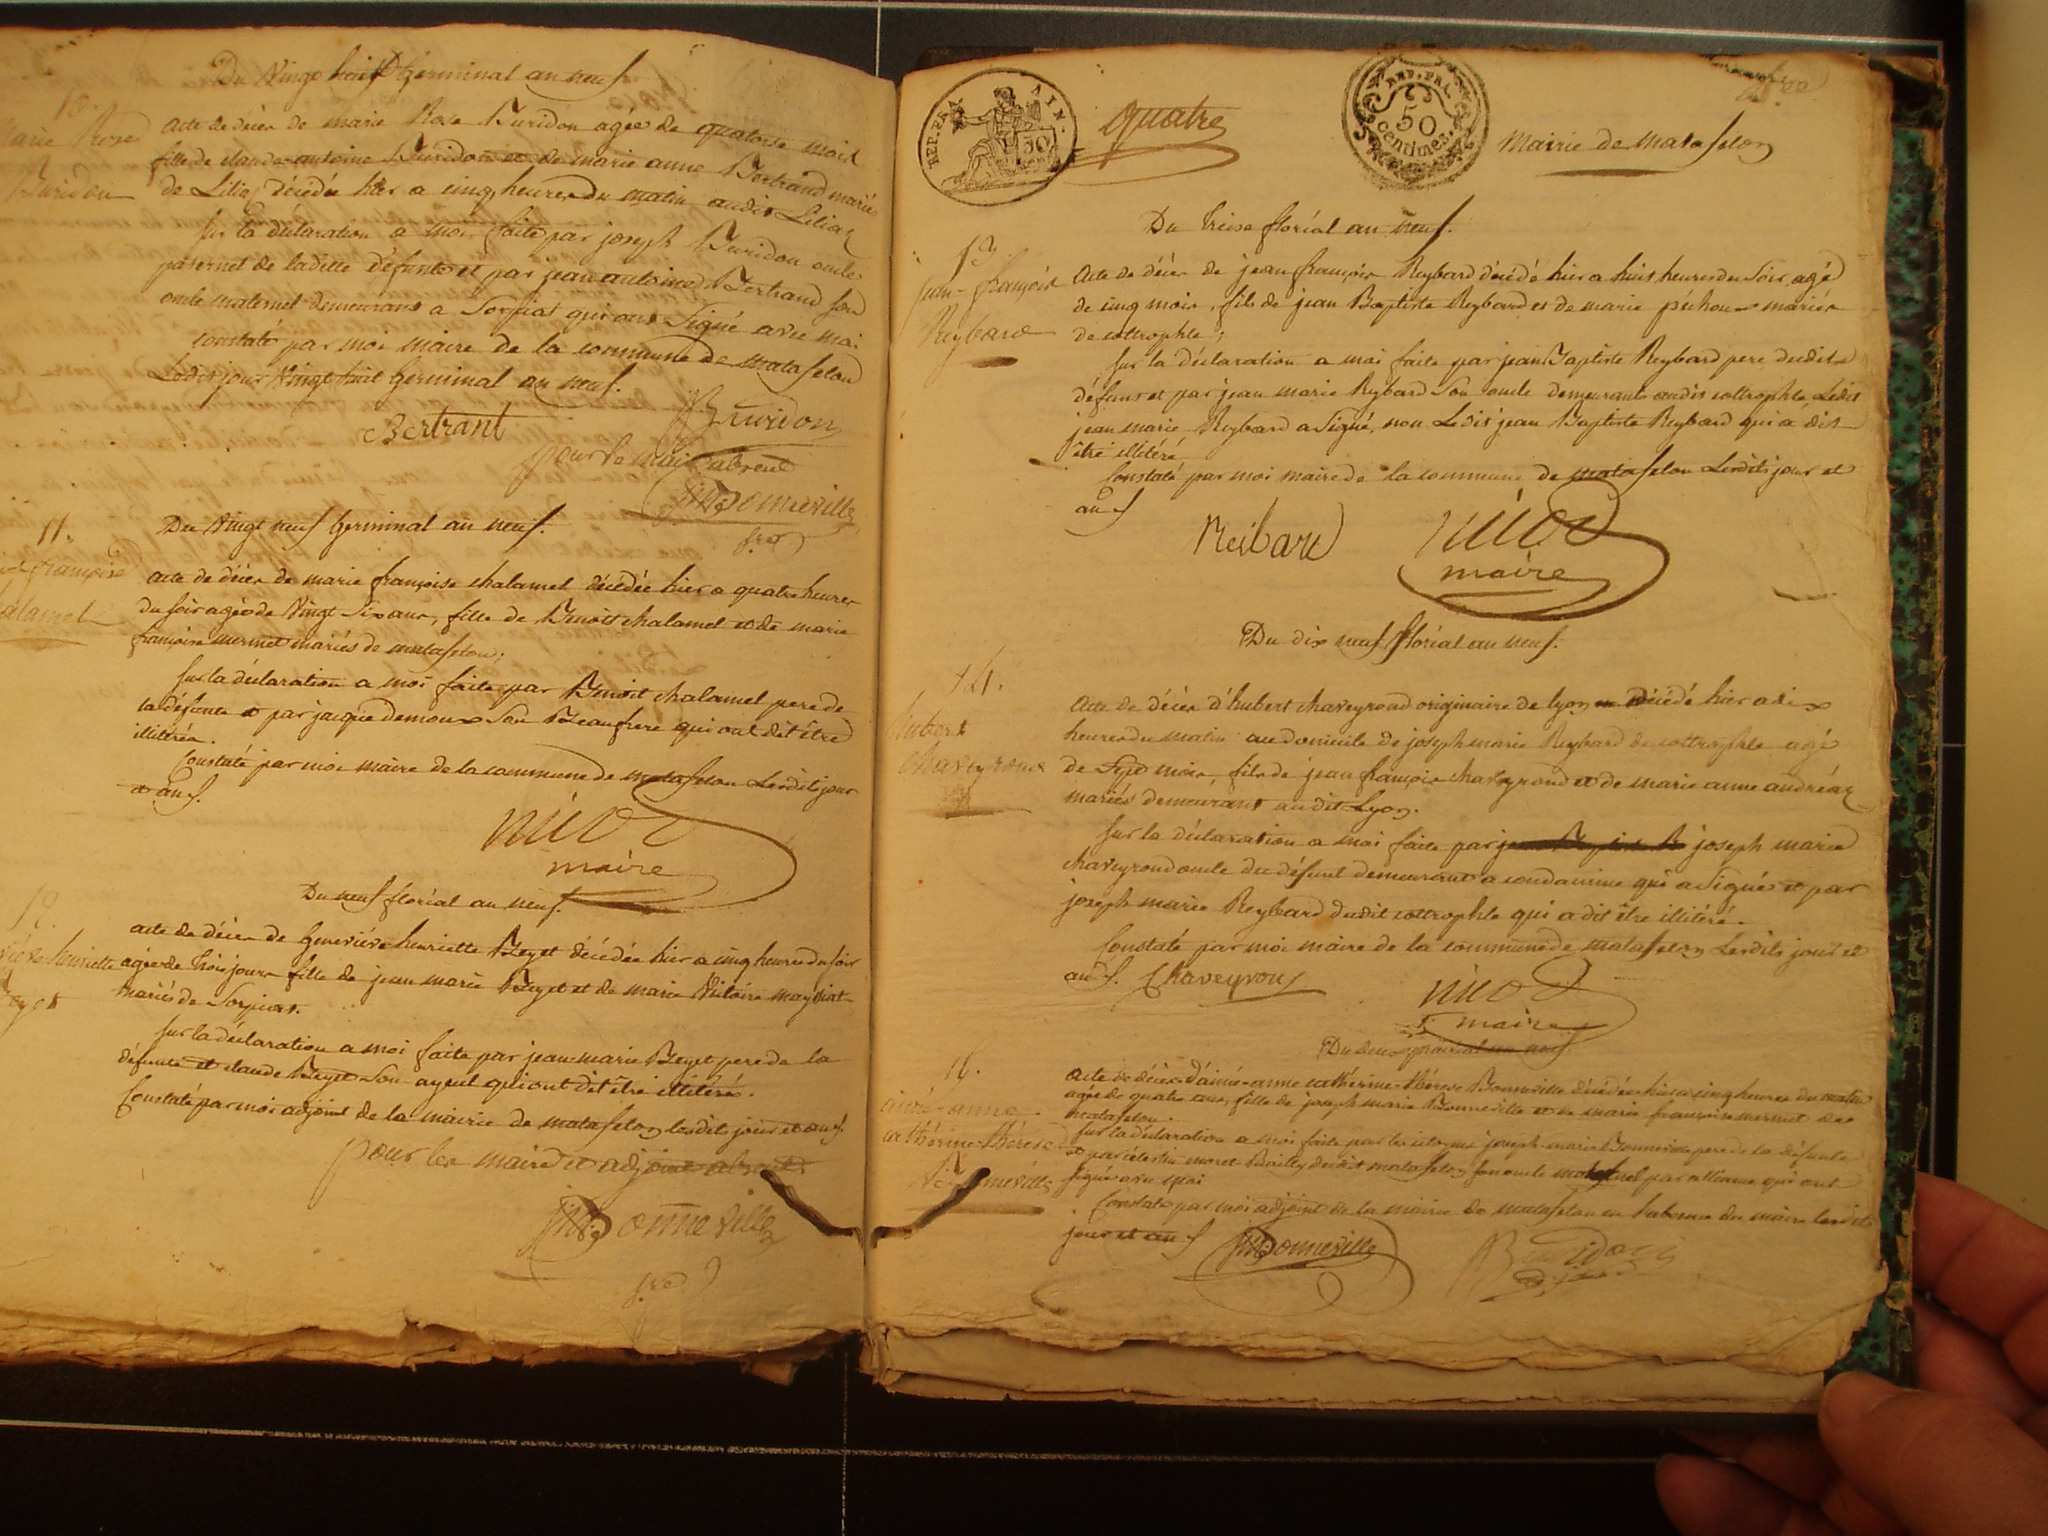 Du Vingt huit Germinal an neuf
10.
Marie Rose
Buridon
acte de décès de marie Rose Buridon agée de quatorse mois
fille de claude antoine Buridon et de marie anne Bertrand mariés
de Lilia, décédée hier a cinq heures du matin audit Lilia
Sur la déclaration a moi faite par joseph Buridon oncle
paternel de ladite défunte et par jean antoine Bertrand son
oncle maternel demeurans a Sorpiat qui ont Signé avec moi
constaté par moi maire de la commune de matafelon
Ledit jour Vingt huit Germinal an neuf.
Bertrant
Buridon
pour le maire absent
Bonneville
11.
françoise
chalamel
Du Vingt neuf Germinal an neuf.
acte de décès de marie françoise chalamel décédée hier a quatre heures
du soir agée de Vingt Six ans, fille de Benoit chalamel et de marie
françoise mermet mariés de matafelon;
Sur la déclaration a moi faite par Benoit chalamel pere de
la défunte et par jacque demoux Son Beaufrere qui ont dit être
illitérés.
Constaté par moi maire de la commune de matafelon Lesdits jour
et an f.
nicod
maire
12.
Du neuf floréal an neuf.
henriette
Beget
acte de décès de Geneviéve henriette Beget décédée hier a cinq heures du soir
agée de trois jours fille de jean marie Beget et de marie Victoire
mariés de Sorpiat.
Sur la déclaration a moi faite par jean marie Beget pere de la
défunte et claude Beget Son ayeul qui ont dit être illitérés.
Constaté par moi adjoint de la mairie de matafelon lesdits jour et an f.
pour les maire et adjoint absents
Bonneville
REP. FRA. AIN.
50
quatre
REP. FRA.
50
centimes
Mairie de matafelon
Du treise floréal an neuf.
13
jean-françois
Reybard
Acte de décès de jean françois Reybard décédé hier a huit heures du Soir, agé
de cinq mois, fils de jean Baptiste Reybard et de marie mariés
de cottrophle;
Sur la déclaration a moi faite par jean Baptiste Reybard pere dudit
défunt et par jean marie Reybard Son oncle demeurants audit cottrophle Ledit
jean marie Reybard a Signé, non Ledit jean Baptiste Reybard qui a dit
être illitéré
Constaté par moi maire de la commune de matafelon Lesdits jour et
an f
Reibard
nicod
maire
Du dix neuf floréal an neuf.
14.
hubert
Chaveyrond
Acte de décès d'hubert chaveyrond originaire de lyon décédé hier a dix
heures du matin au domicile de joseph marie Reybard de cottrophle agé
de Sept mois, fils de jean françois chaveyrond et de marie anne andréa
mariés demeurant audit Lyon.
Sur la déclaration a moi faite par joseph marie
chaveyrond oncle du défunt demeurant a condamine qui a Signé et par
joseph marie Reybard dudit cottrophle qui a dit être illitéré.
Constaté par moi maire de la commune de matafelon Lesdits jour et
an f. Chaveyron
nicod
maire
Du deux prairial an neuf.
15.
aimée-anne
cathérine-thérese
Bonneville
acte de décès d'aimée-anne cathérine-thérese Bonneville décédée hier a cinq heures du matin
agée de quatre ans, fille de joseph marie Bonneville et de marie françoise mermet de
matafelon.
Sur la déclaration a moi faite par les citoyens joseph-marie Bonneville pere de la défunte
et par célestin moret Bailly dudit matafelon Son oncle maternel par alliance qui ont
Signé avec moi
Constaté par moi adjoint de la mairie de matafelon en l'absence du maire lesdits
jour et an f
Bonneville
Buridon
adjoint